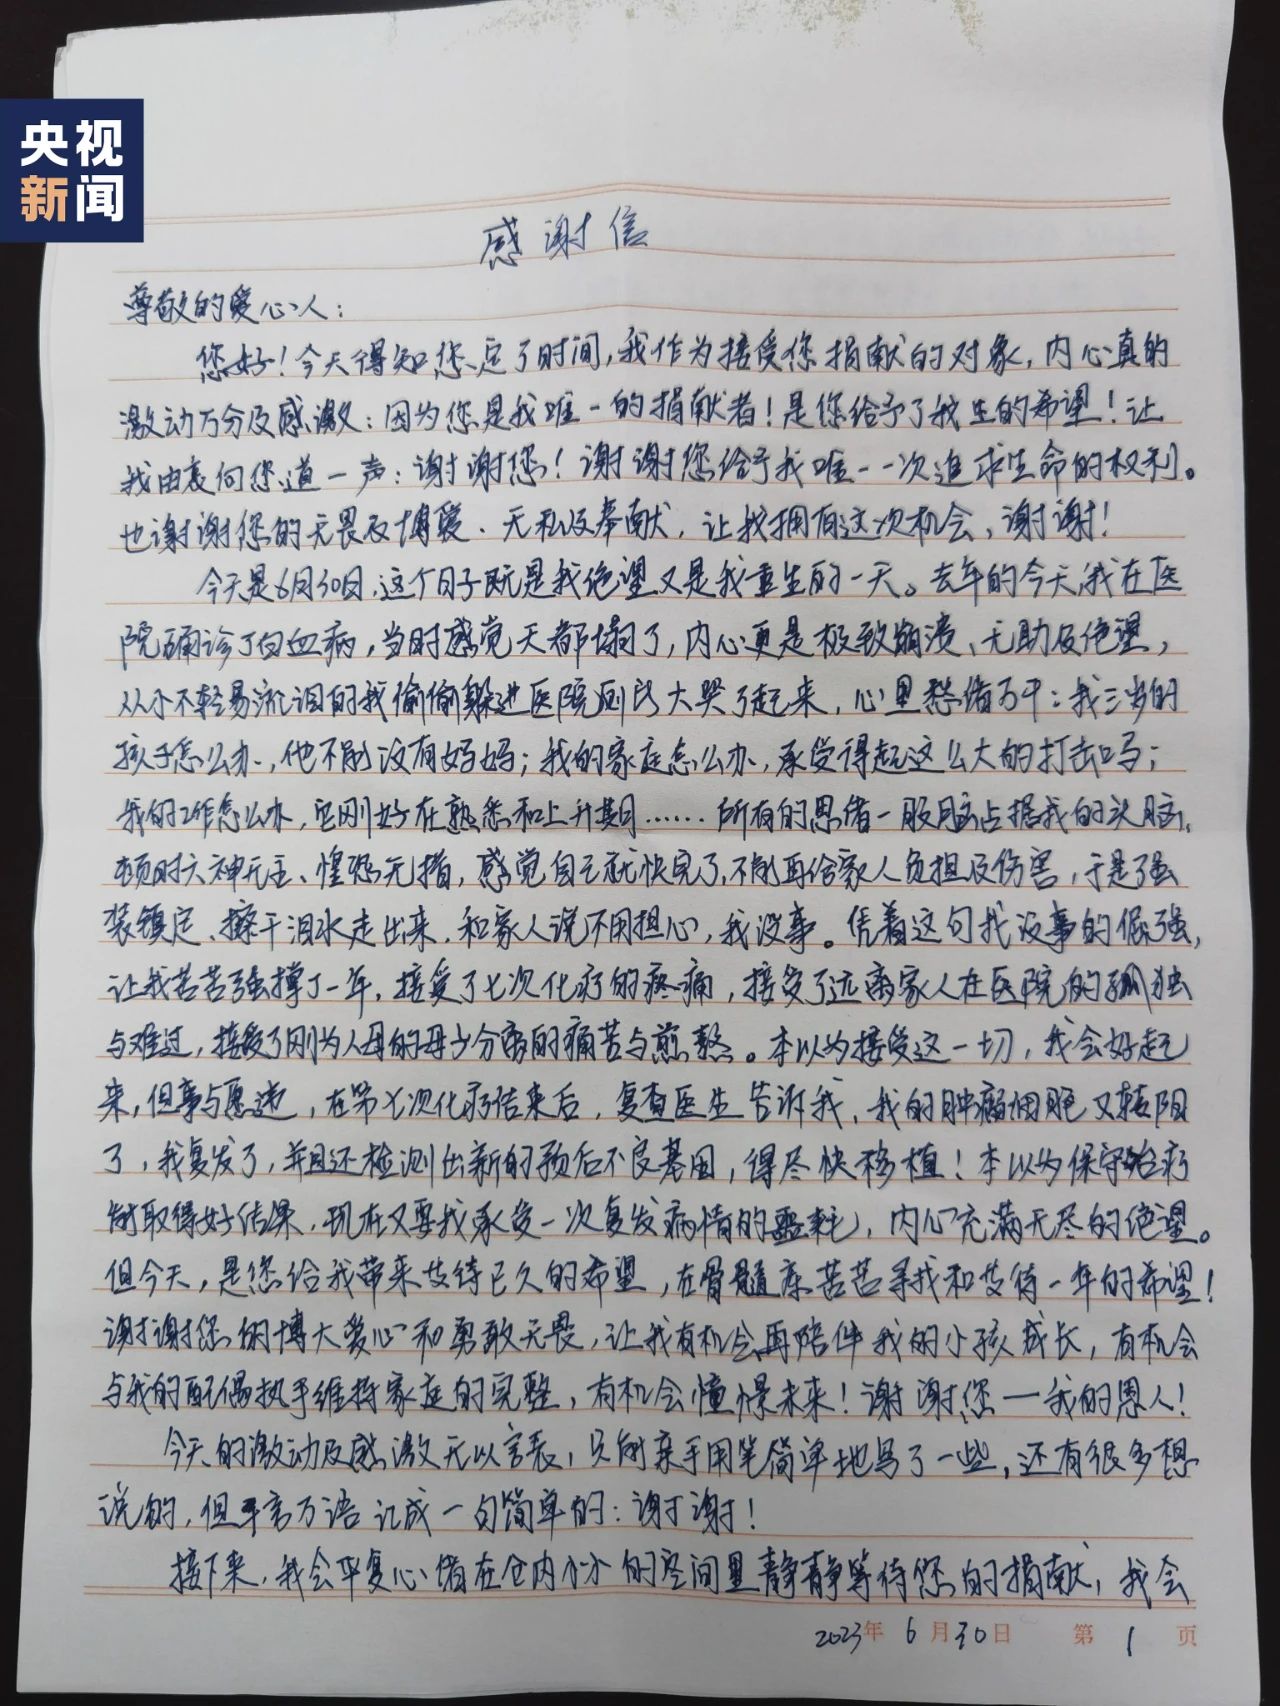 央视
新闻
感谢信
尊敬的爱心人：
您好！今天得知您定了时间，我作为接受您捐献的对象，内心真的
激动万分及感激：因为您是我唯一的捐献者！是您给予了我生的希望！让
我由衷向您道一声：谢谢您！谢谢您给予我唯一一次追求生命的权利。
也谢谢您的无畏及博爱、无私及奉献，让我拥有这次机会，谢谢！
今天是6月30日，这个日子既是我绝望又是我重生的一天。去年的今天我在医
院确诊了白血病，当时感觉天都塌了，内心更是极致崩溃、无助及绝望，
从小不轻易流泪的我偷偷躲进医院厕所大哭了起来，心里愁绪万千：我三岁的
孩子怎么办，他不能没有妈妈；我的家庭怎么办，承受得起这么大的打击吗；
我的工作怎么办，它刚好在熟悉和上升期……所有的思绪一股脑占据我的头脑，
顿时六神无主、惶恐无措，感觉自己就快完了，不能再给家人负担及伤害，于是强
装镇定、擦干泪水走出来，和家人说不用担心，我没事。凭着这句我没事的倔强，
让我苦苦强撑了一年，接受了七次化疗的疼痛，接受了远离家人在医院的孤独
与难过，接受了刚为人母的母少分离的痛苦与煎熬。本以为接受这一切，我会好起
来，但事与愿违，在第七次化疗结束后，复查医生告诉我，我的肿瘤细胞又转阳
了，我复发了，并且还检测出新的预后不良基因，得尽快移植！本以为保守治疗
能取得好结果，现在又要我承受一次复发病情的噩耗，内心充满无尽的绝望。
但今天，是您给我带来救待已久的希望，在骨髓库苦苦寻找和救待一年的希望！
谢谢您的博大爱心和勇敢无畏，让我有机会再陪伴我的小孩成长，有机会
与我的配偶执手维持家庭的完整，有机会憧憬未来！谢谢您——我的恩人！
今天的激动及感激无以言表，只能亲手用笔简单地写了一些，还有很多想
说的，但千言万语汇成一句简单的：谢谢！
接下来，我会平复心绪在仓内小小的空间里静静等待您的捐献，我会
2023年6月30日 第1页